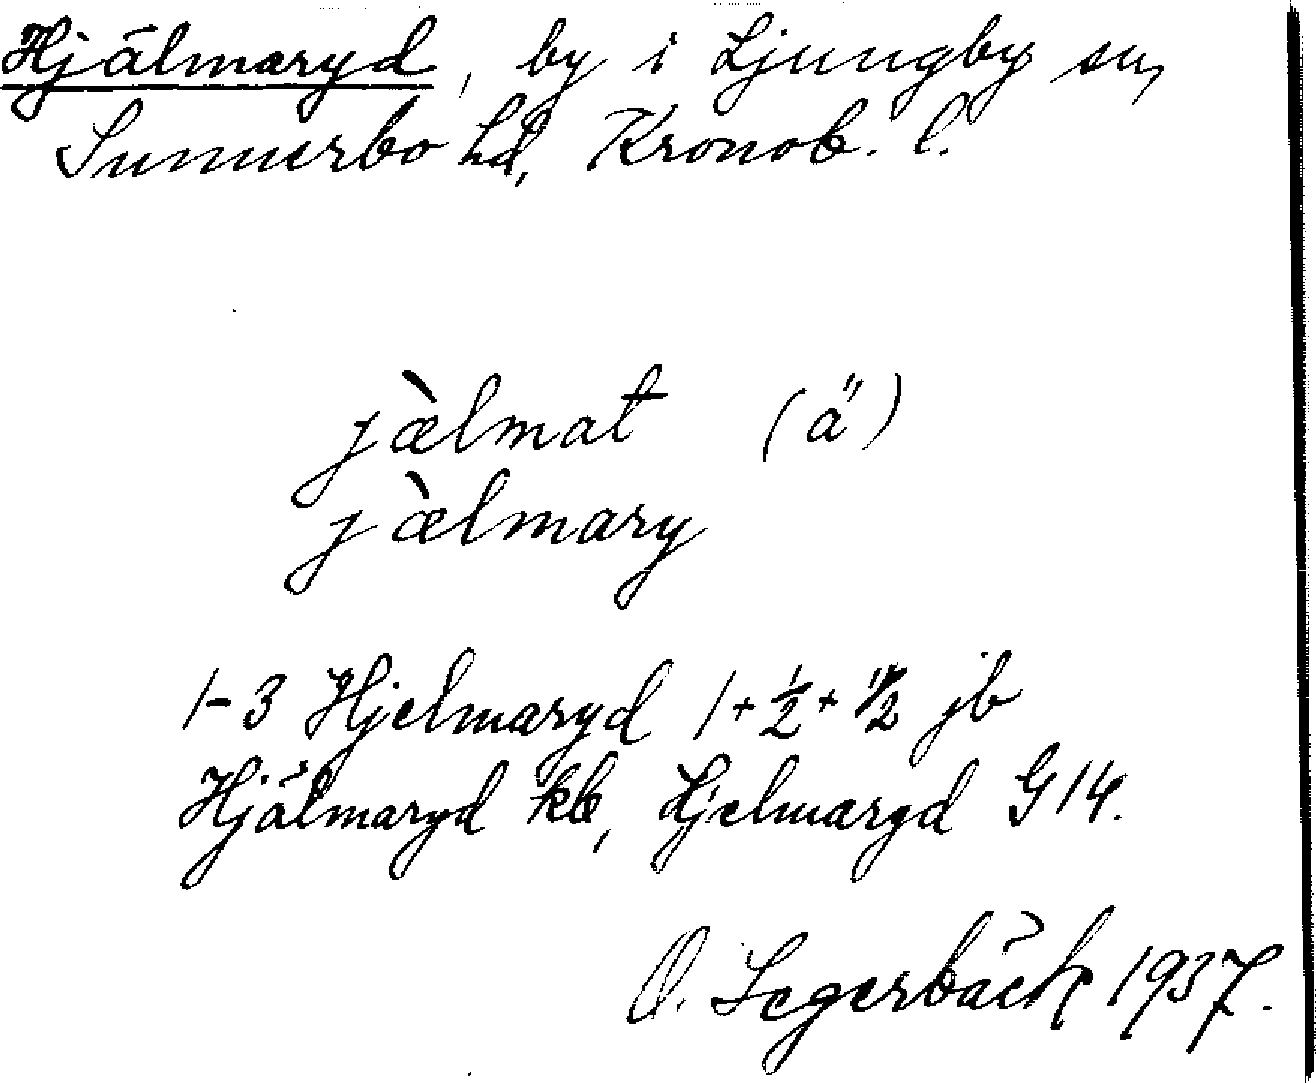 Hjälmaryd, by i Ljungby sn,
Sunnerbo hd, Kronob. l.
jàlmat (ä)
jàlmary
1-3 Hjelmaryd 1 + 1/2 + 1/2 jb
Hjälmaryd kb, Hjelmaryd G 14.
O. Segerbäck 1937.